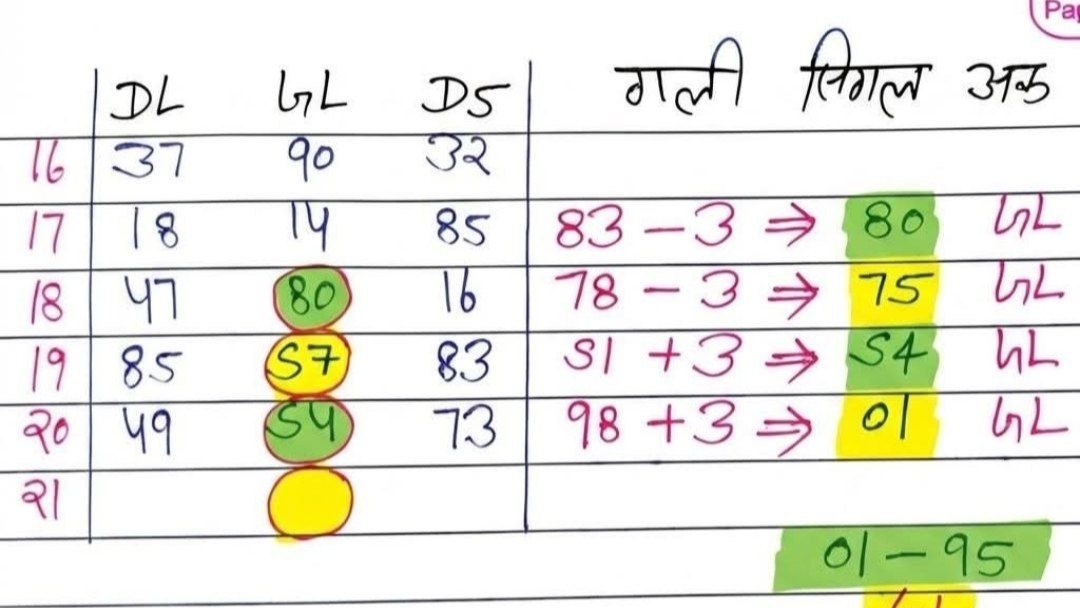 DL GL DS गली सिंगल अंक
16 37 90 32
17 18 14 85 83 - 3 ⇒ 80 GL
18 47 80 16 78 - 3 ⇒ 75 GL
19 85 57 83 51 + 3 ⇒ 54 GL
20 49 54 73 98 + 3 ⇒ 01 GL
21
01 - 95